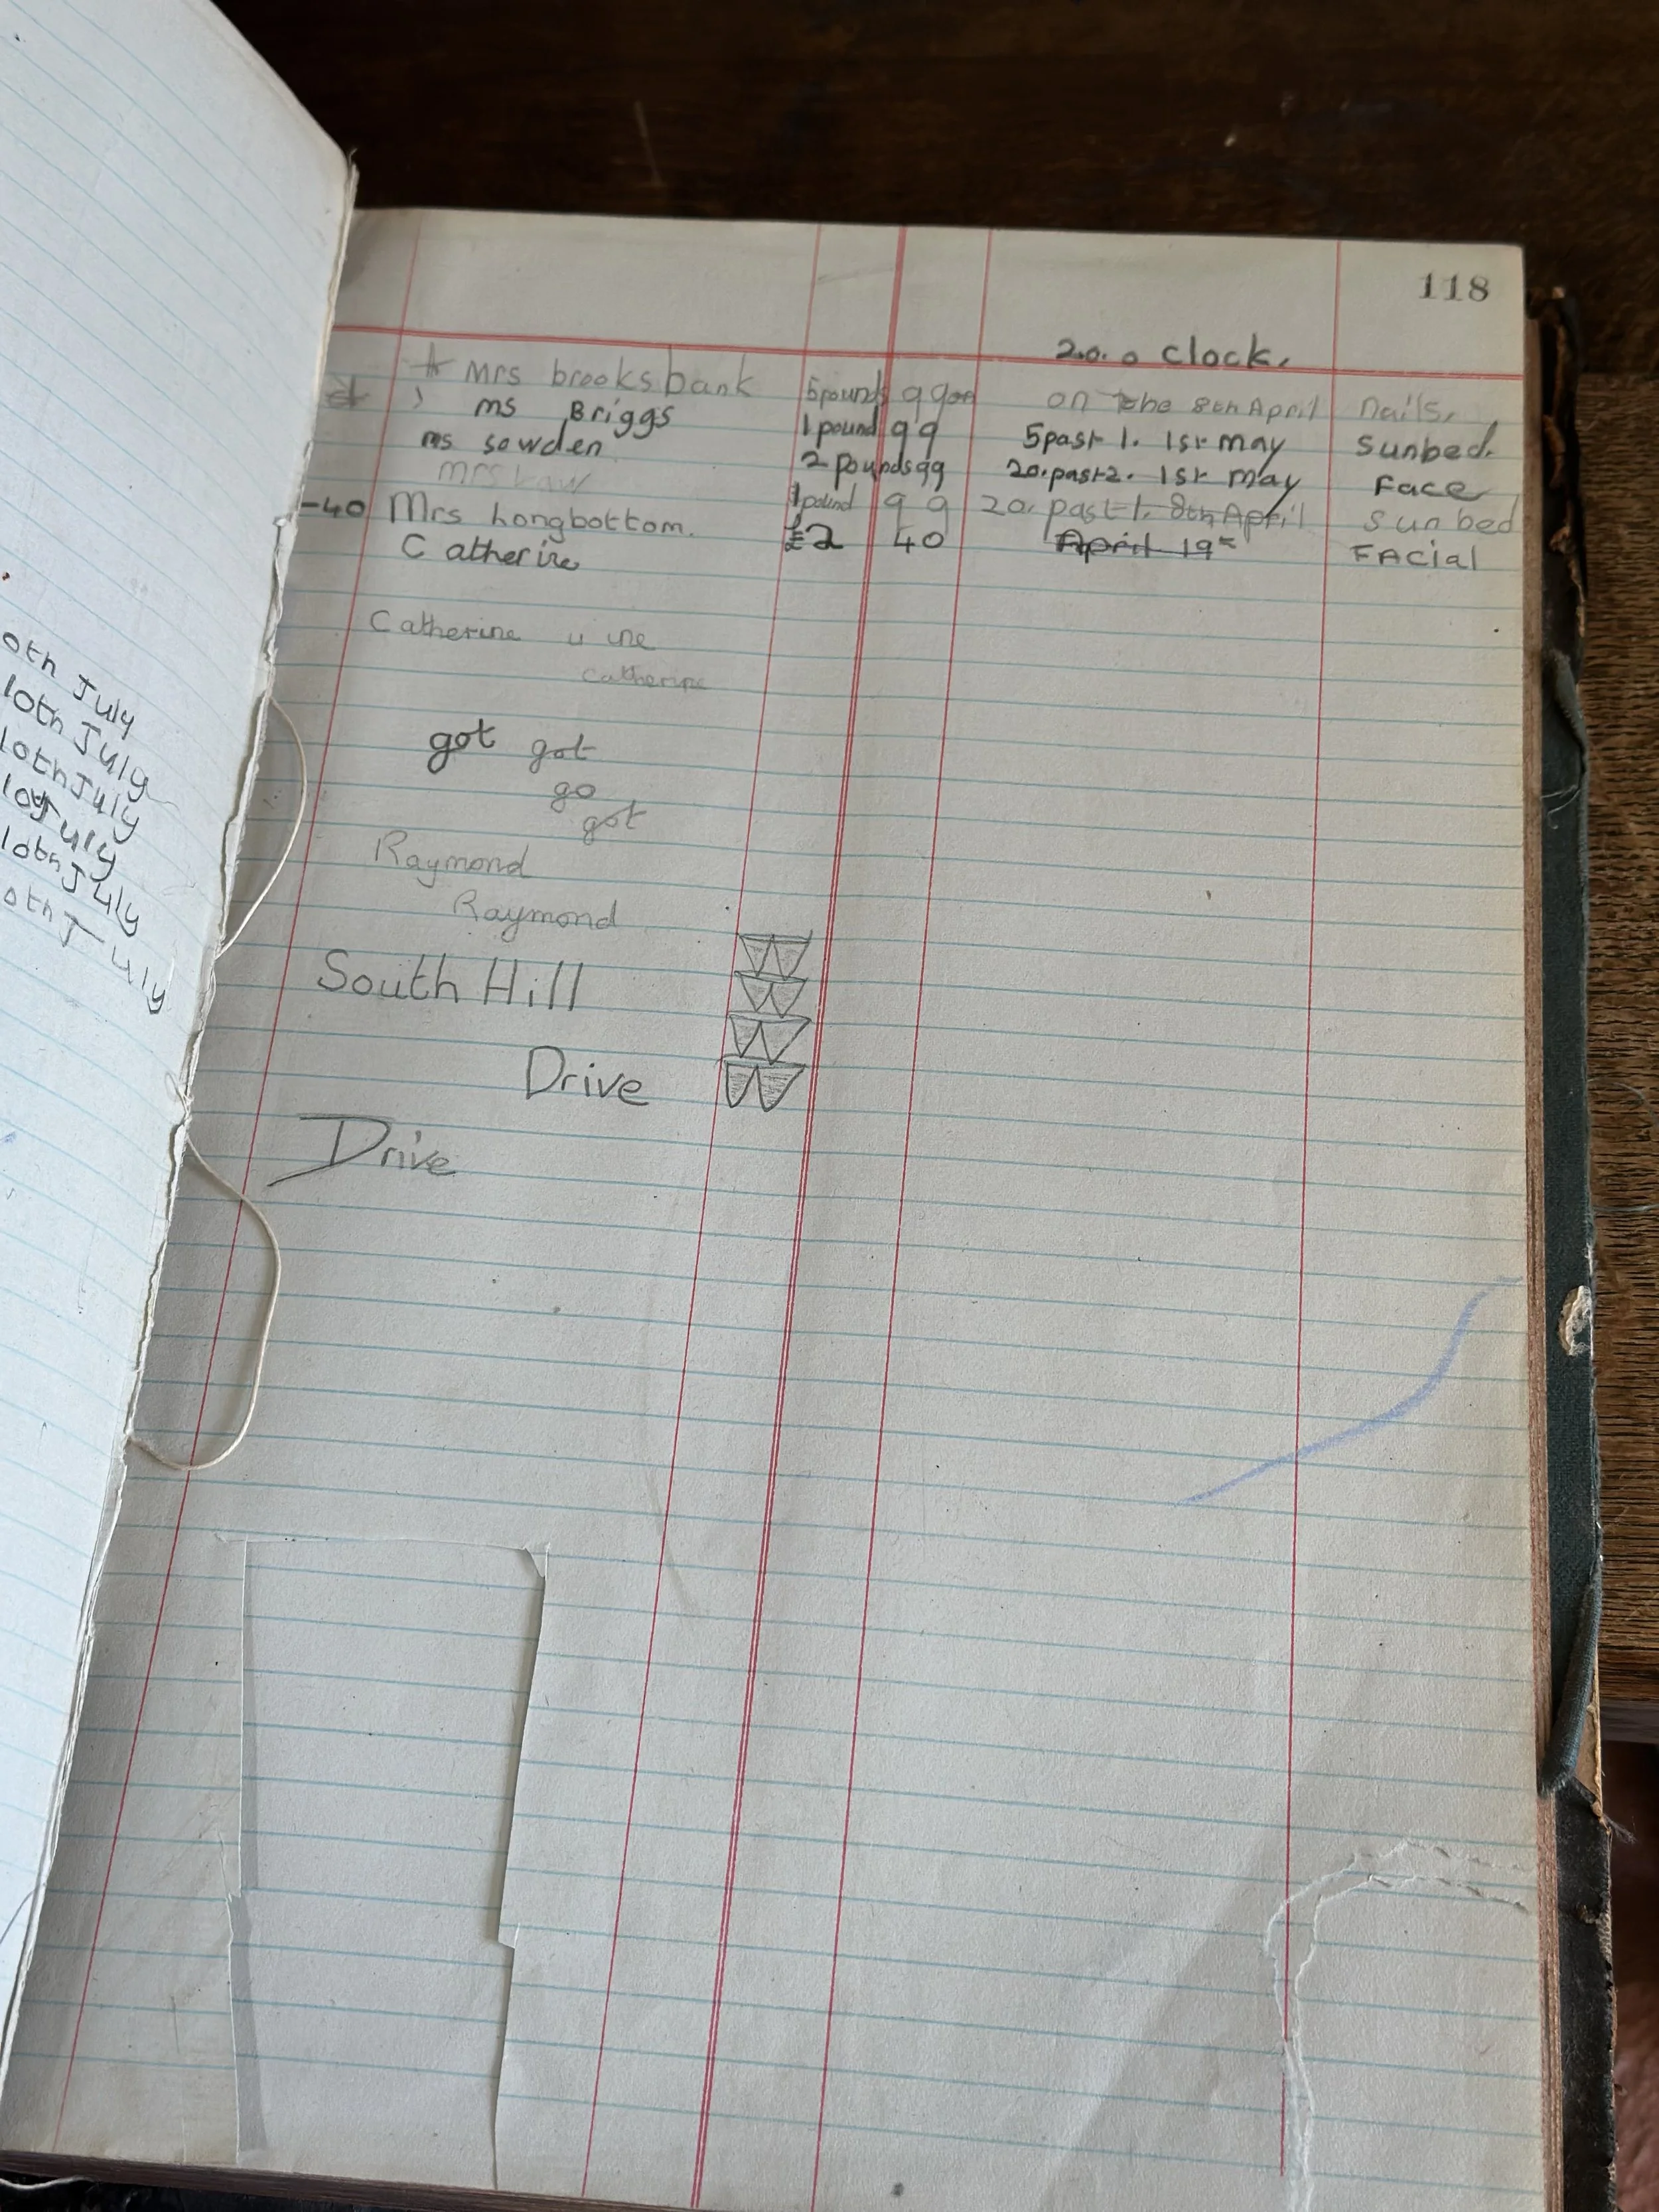 118
2.0. o clock.
Mrs brooksbank 5pounds 99 on the 8th April nails,
ms Briggs 1 pound 99 5past 1. 1st may sunbed.
ms sowden 2 pounds 99 20.past 2. 1st may Face
mrs
-40 Mrs Longbottom. 1 pound 99 20. past 1. 8th April sunbed
Catherine £2 40 April 19 FACial
Catherine u ine
catherine
got got
go
got
Raymond
Raymond
South Hill
Drive
Drive
0th July
10th July
10th July
10 July
10th July
0th July